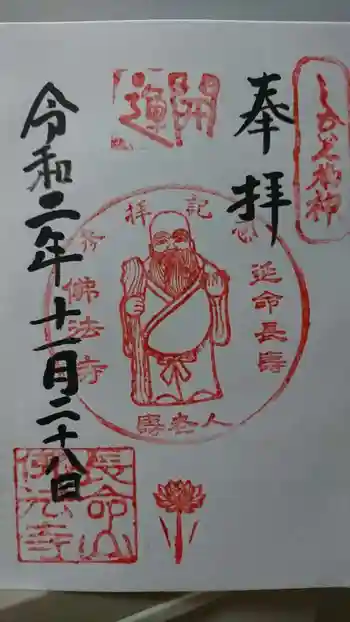 奉拝
開運
参拝記念
延命長壽
佛法寺
壽老人
令和二年十一月二十八日
長命山
佛法寺